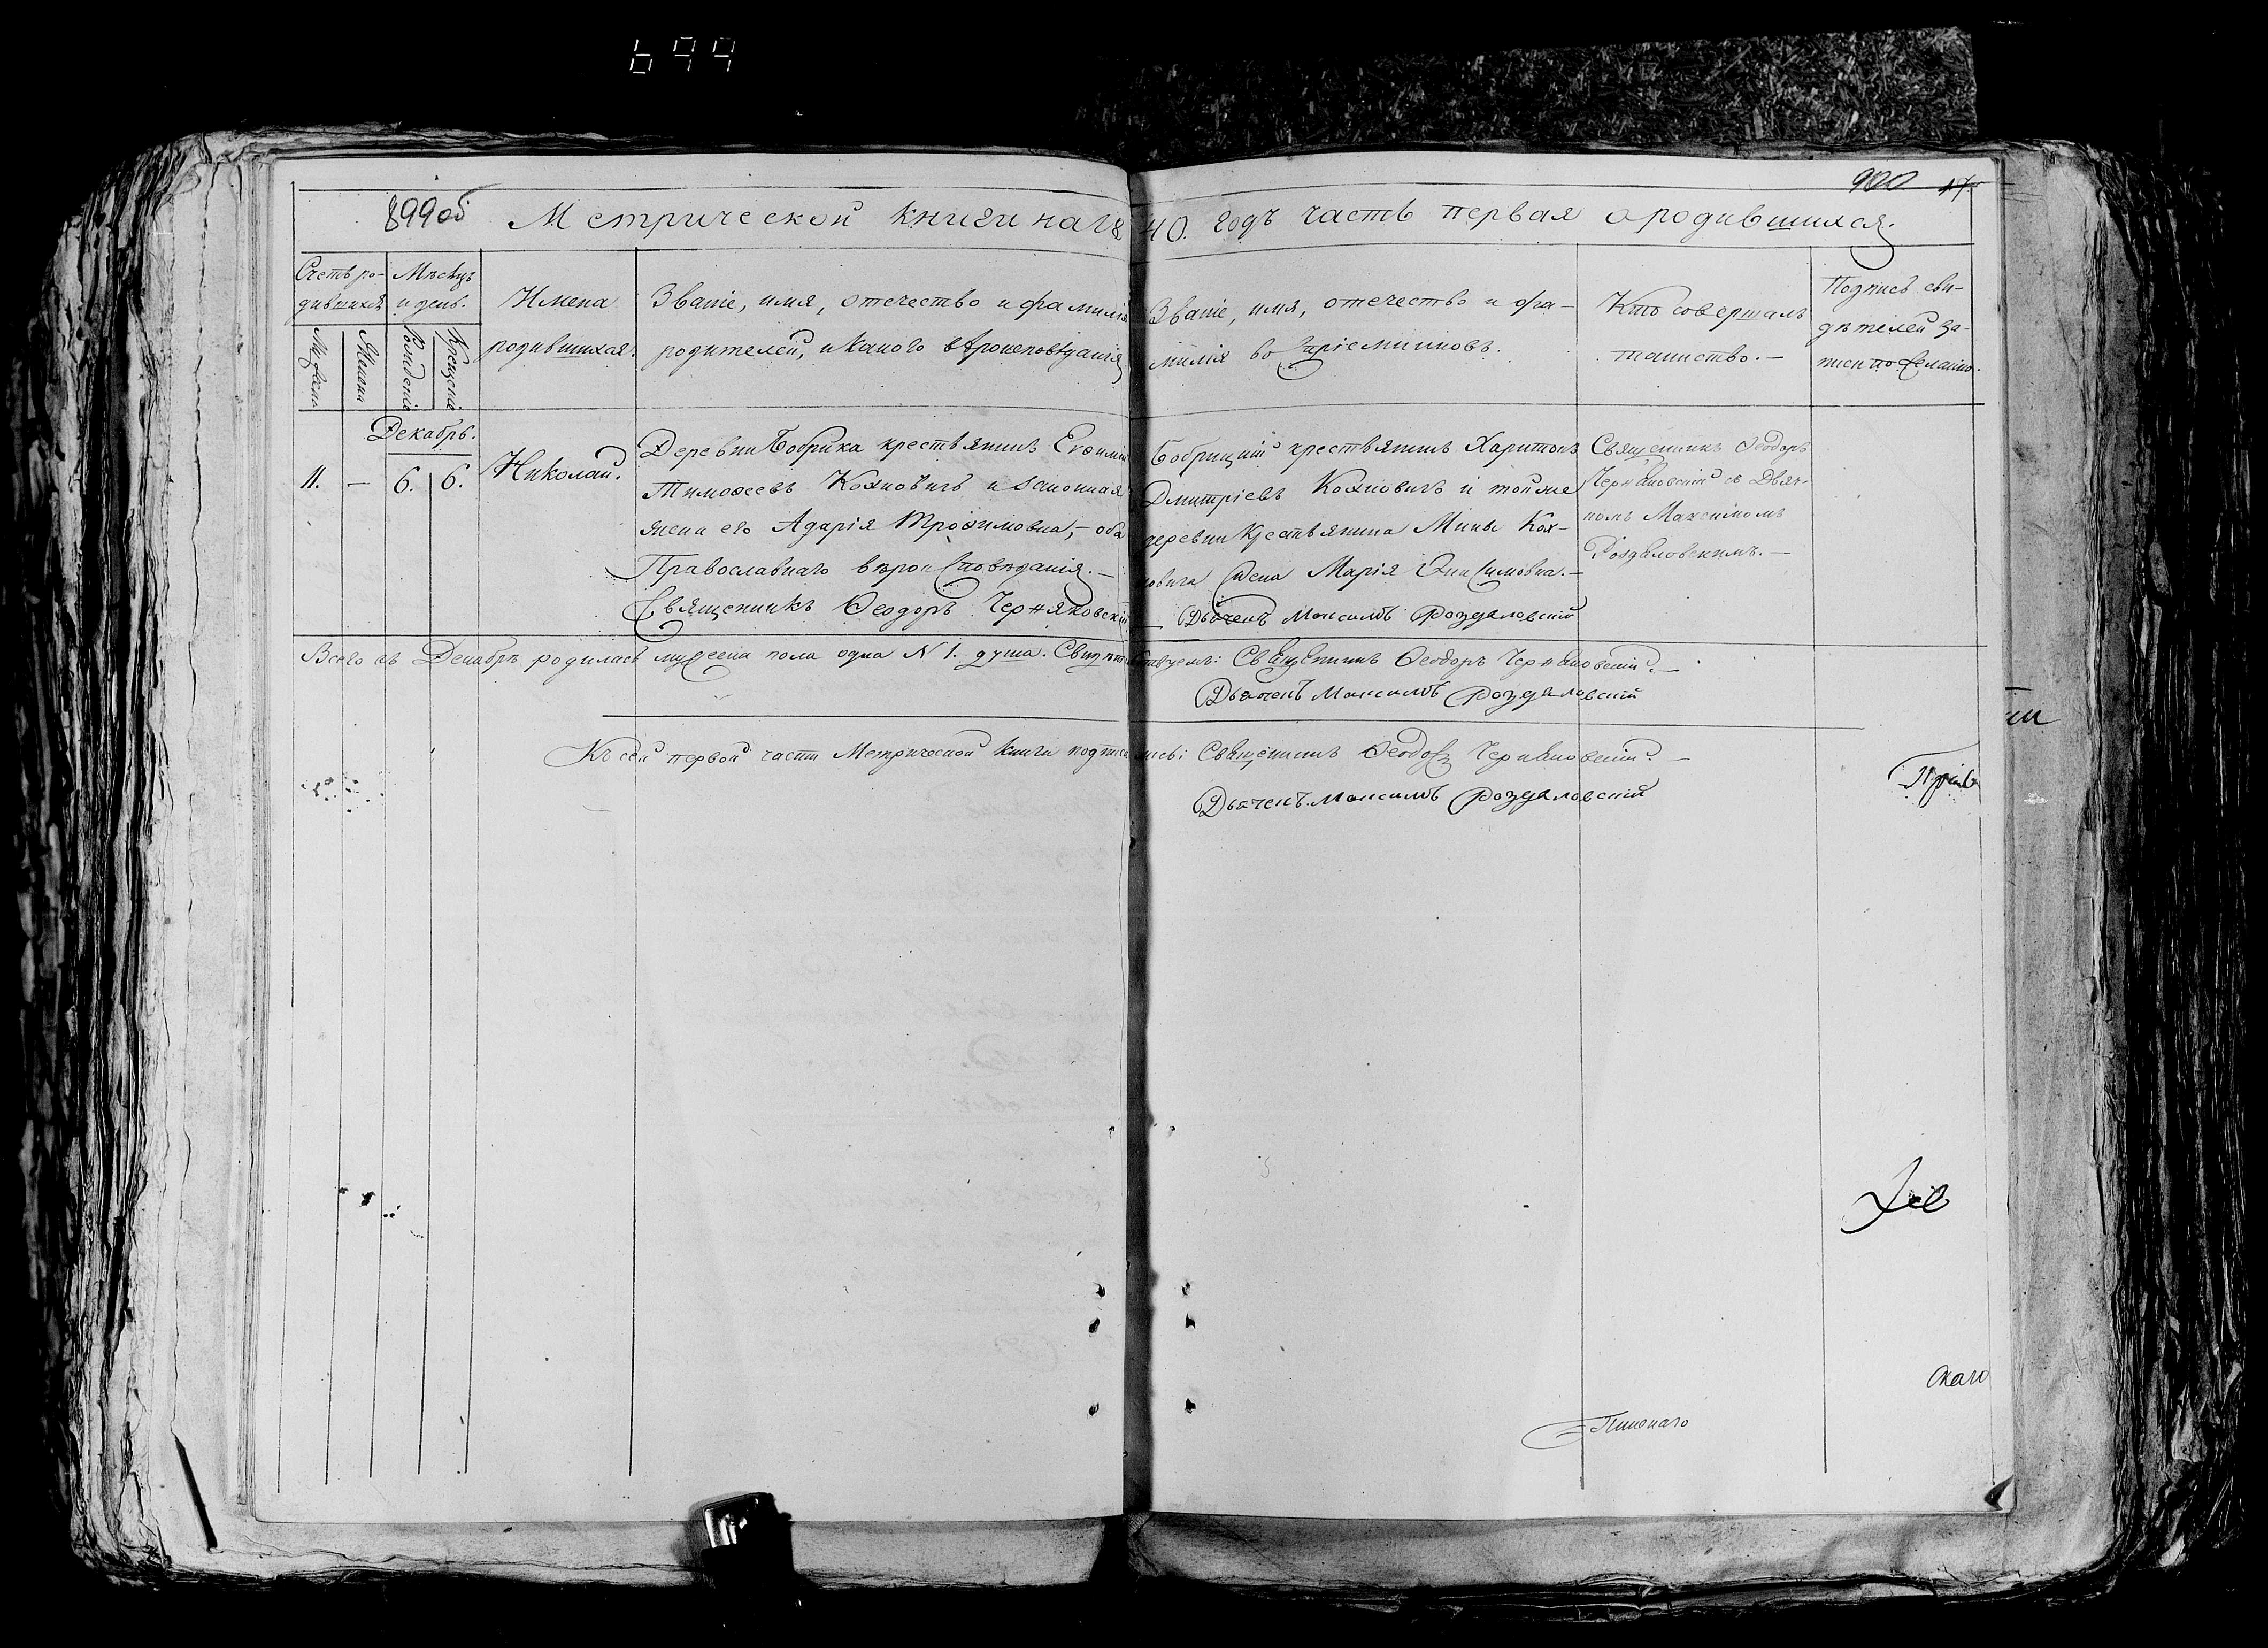 699
899об
900 17.
Метрической книги на 1840. годъ часть первая о родившихся.
Счетъ ро-
дившихся
Мѣсяцъ
и день.
Мужеска
Женска
Рожденія
Крещенія
Имена
родившихся.
Званіе, имя, отечество и фамилія
родителей, и какого вѣроисповѣданія
Званіе, имя, отечество и фа-
милія воспріемниковъ.
Кто совершалъ
таинство.—
Подпись сви-
дѣтелей за-
писи по желанію.
Декабрь.
11. — 6. 6. Николай.
Деревни Бобрика крестьянинъ Евѳимій
Тимоѳеевъ Кохновичъ и законная
жена его Адарія Трофимовна,— оба
Православнаго вѣроисповѣданія.—
Священникъ Ѳеодоръ Черняковскій
Бобрицкій крестьянинъ Харитонъ
Дмитріевъ Кохновичъ и тойже
деревни крестьянина Мины Кох-
новича жена Марія Онисимовна.—
Дьячекъ Максимъ Роздяловскій
Священникъ Ѳеодоръ
Черняковскій съ Дьяч-
комъ Максимомъ
Роздяловскимъ.—
Всего въ Декабрѣ родилась мужеска пола одна N 1. душа. Свидѣтельствуемъ: Священникъ Ѳеодоръ Черняковскій.—
Дьячекъ Максимъ Роздяловскій
Къ сей первой части Метрической книги подписались: Священникъ Ѳеодоръ Черняковскій.—
Дьячекъ Максимъ Роздяловскій
Пинскаго